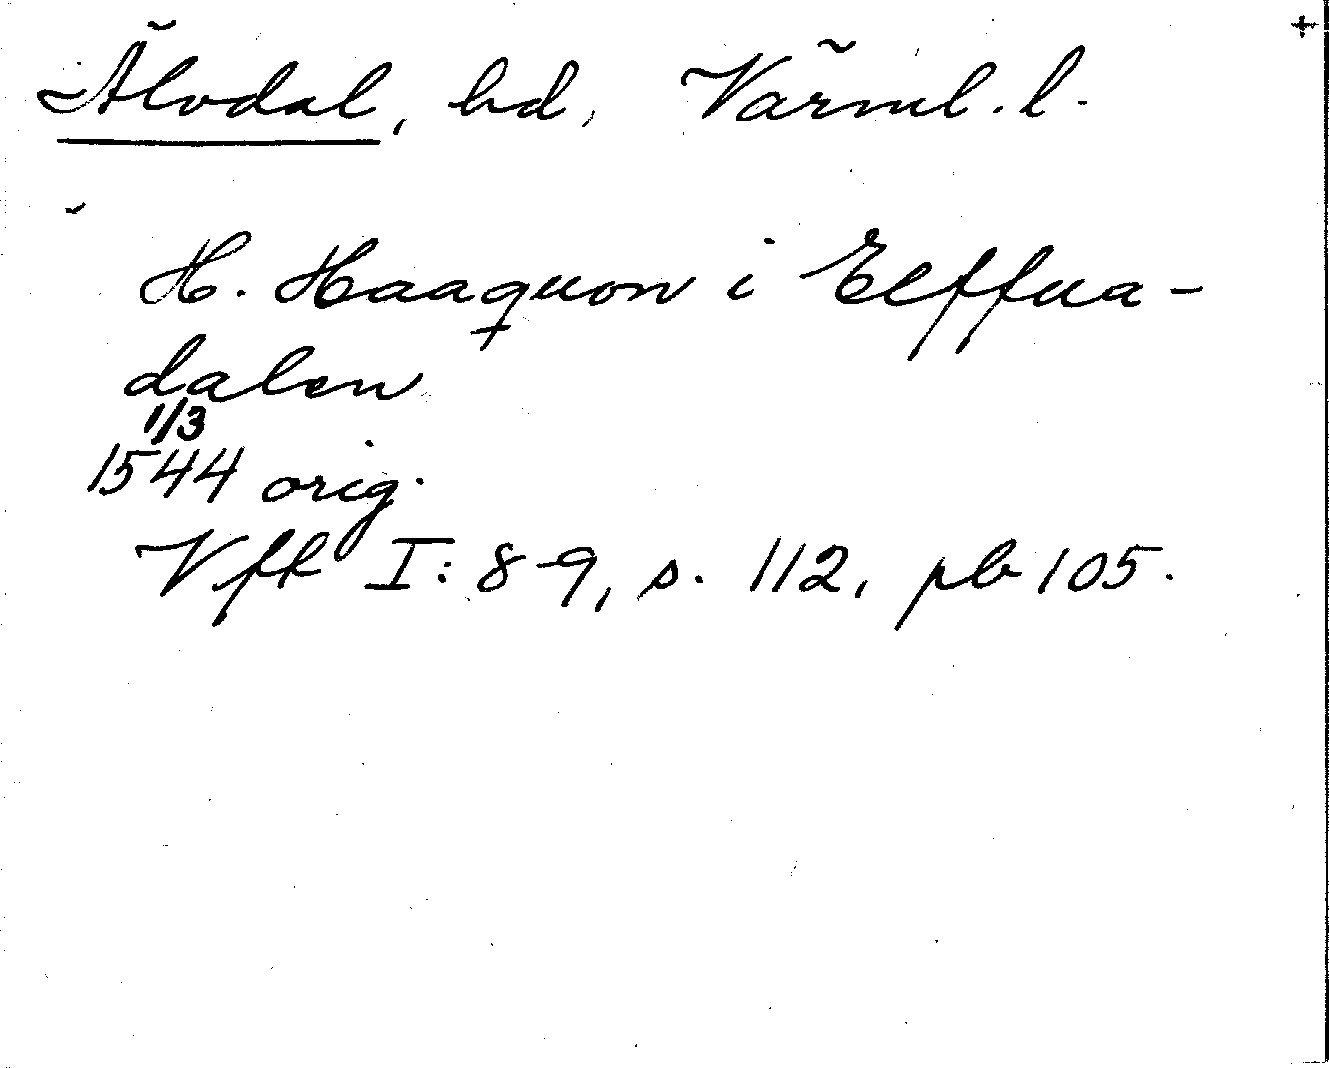 Älvdal, hd, Värml. l.
H. Haaquon i Elffua-
dalen
1/3
1544 orig.
Vfh I: 8-9, s. 112, pb 105.